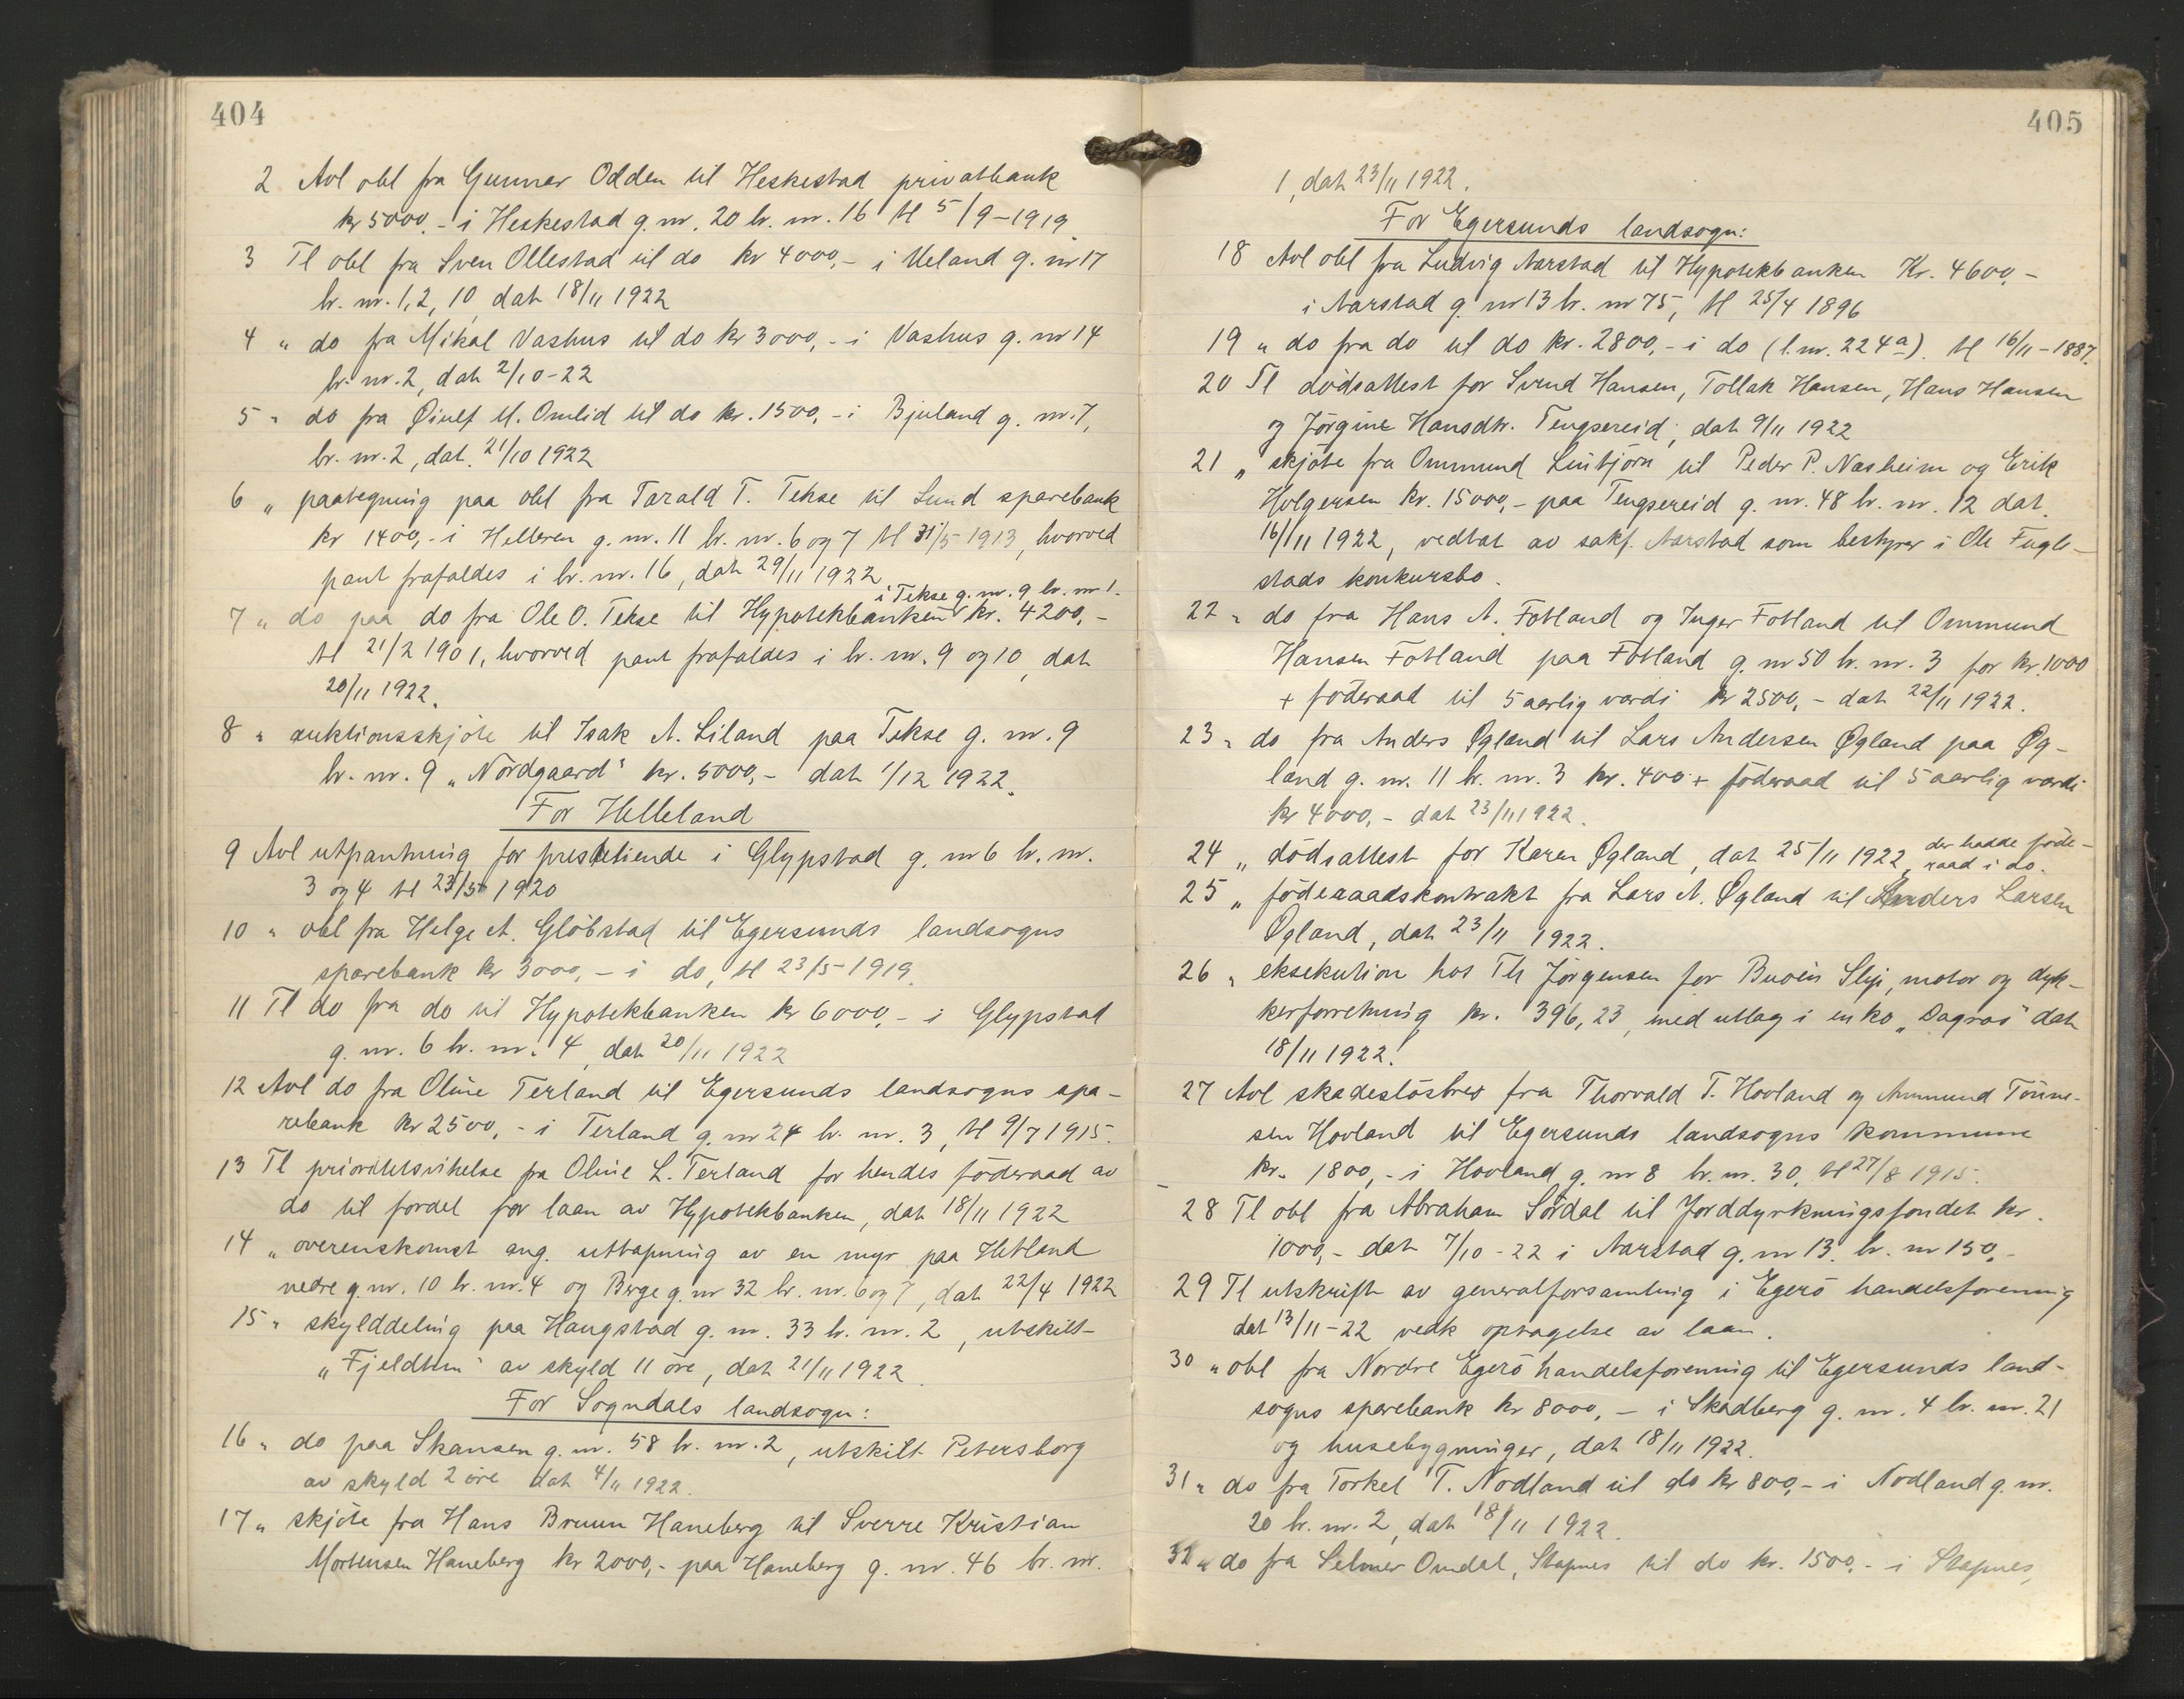 404
2 Avl obl fra Gunner Odden til Heskestad privatbank
kr 5000,- i Heskestad g. nr. 20 br. nr. 16 tl 5/9-1919.
3 Tl obl fra Sven Ollestad til do kr 4000,- i Ueland g. nr 17
br. nr. 1, 2, 10, dat 18/11 1922
4 " do fra Mikal Vashus til do kr 3000,- i Vashus g. nr 14
br. nr. 2, dat 2/10-22
5 " do fra Øiulf M. Omlid til do kr. 1500,- i Bjuland g. nr. 7,
br. nr. 2, dat. 21/10 1922
6 " paategning paa obl fra Tarald T. Tekse til Lund sparebank
kr 1400,- i Helleren g. nr. 11 br. nr. 6 og 7 tl 31/5 1913, hvorved
pant frafaldes i br. nr. 16, dat 29/11 1922
i Tekse g. nr. 9 br. nr 1.
7 " do paa do fra Ole O. Tekse til Hypotekbanken kr. 4200,-
tl 21/2 1901, hvorved pant frafaldes i br. nr. 9 og 10, dat
20/11 1922.
8 " auktionsskjöte til Isak A. Liland paa Tekse g. nr. 9
br. nr. 9 "Nordgaard" kr. 5000,- dat 1/12 1922.
For Helleland
9 Avl utpantning for prestetiende i Glypstad g. nr 6 br. nr.
3 og 4 tl 23/5 1920
10 " obl fra Helge A. Glöbstad til Egersunds landsogns
sparebank kr 3000,- i do, tl 23/5-1919.
11 Tl do fra do til Hypotekbanken kr 6000,- i Glypstad
g. nr. 6 br. nr. 4, dat 20/11 1922
12 Avl do fra Oline Terland til Egersunds landsogns spa-
rebank kr 2500,- i Terland g. nr 24 br. nr. 3, tl 9/7 1915.
13 Tl prioritetsvikelse fra Oline L. Terland for hendes föderaad av
do til fordel for laan av Hypotekbanken, dat 18/11 1922
14 " overenskomst ang. uttapning av en myr paa Hetland
nedre g. nr. 10 br. nr. 4 og Berge g. nr 32 br. nr. 6 og 7, dat 22/4 1922
15 " skylddeling paa Haugstad g. nr. 33 br. nr. 2, utskilt
"Fjeldtun" av skyld 11 öre, dat 21/11 1922.
For Sogndals landsogn:
16 " do paa Skansen g. nr. 58 br. nr. 2, utskilt Petersborg
av skyld 2 öre dat 4/11 1922.
17 " skjöte fra Hans Bruun Haneberg til Sverre Kristian
Mortensen Haneberg kr 2000,- paa Haneberg g. nr. 46 br. nr.
405
1, dat 23/11 1922.
For Egersunds landsogn:
18 Avl obl fra Ludvig Aarstad til Hypotekbanken Kr. 4600,-
i Aarstad g. nr 13 br. nr 75, tl 25/4 1896
19 " do fra do til do kr. 2800,- i do (l. nr. 224a). tl 16/11-1887.
20 Tl dödsattest for Svend Hansen, Tollak Hansen, Hans Hansen
og Jörgine Hansdtr. Tengsereid, dat 9/11 1922
21 " skjöte fra Ommund Linbjörn til Peder P. Nasheim og Erik
Holgersen kr. 15000,- paa Tengsereid g. nr. 48 br. nr. 12 dat.
16/11 1922, vedtat av sakf. Aarstad som bestyrer i Ole Fugle-
stads konkursbo.
22 " do fra Hans A. Fotland og Inger Fotland til Ommund
Hansen Fotland paa Fotland g. nr 50 br. nr. 3 for kr. 1000
+ föderaad til 5 aarlig værdi kr 2500,- dat 22/11 1922.
23 " do fra Anders Øgland til Lars Andersen Øgland paa Øg-
land g. nr. 11 br. nr. 3 kr. 400 + föderaad til 5 aarlig værdi
kr 4000,- dat 23/11 1922.
24 " dödsattest for Karen Øgland, dat 25/11 1922, der hadde föde-
raad i do.
25 " födeaaadskontrakt fra Lars A. Øgland til Anders Larsen
Øgland, dat 23/11 1922.
26 " eksekution hos Th Jörgensen for Buöens Slip, motor og dyk-
kerforretning kr. 396,23, med utlæg i en ko "Dagros" dat
18/11 1922.
27 Avl skadeslösbrev fra Thorvald T. Hovland og Ammund Tönne-
sen Hovland til Egersunds landsogns kommune
kr. 1800,- i Hovland g. nr 8 br. nr. 30, tl 27/8 1915.
28 Tl obl fra Abraham Sördal til Jorddyrkningsfondet kr.
1000,- dat 7/10-22 i Aarstad g. nr 13 br. nr 150.-
29 Tl utskrift av generalforsamling i Egerö handelsforening
dat 13/11-22 vedk optagelse av laan.
30 " obl fra Nordre Egerö handelsforening til Egersunds land-
sogns sparebank kr 8000,- i Skadberg g. nr. 4 br. nr. 21
og husebygninger, dat 18/11 1922.
31 " do fra Torkel T. Nodland til do kr 800,- i Nodland g. nr.
20 br. nr. 2, dat 18/11 1922.
32 " do fra Selmer Omdal, Stapnes til do kr. 1500,- i Stapnes,